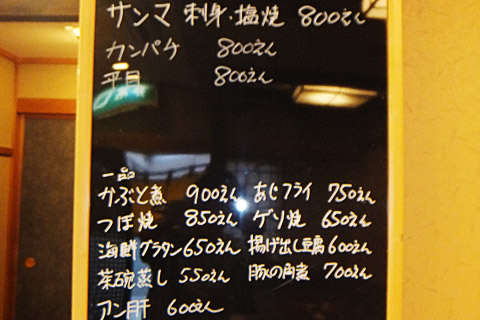 サンマ 刺身・塩焼 800えん
カンパチ 800えん
平目 800えん
一品
かぶと煮 900えん あじフライ 750えん
つぼ焼 850えん ゲソ焼 650えん
海鮮グラタン 650えん 揚げ出し豆腐 600えん
茶碗蒸し 550えん 豚の角煮 700えん
アン肝 600えん